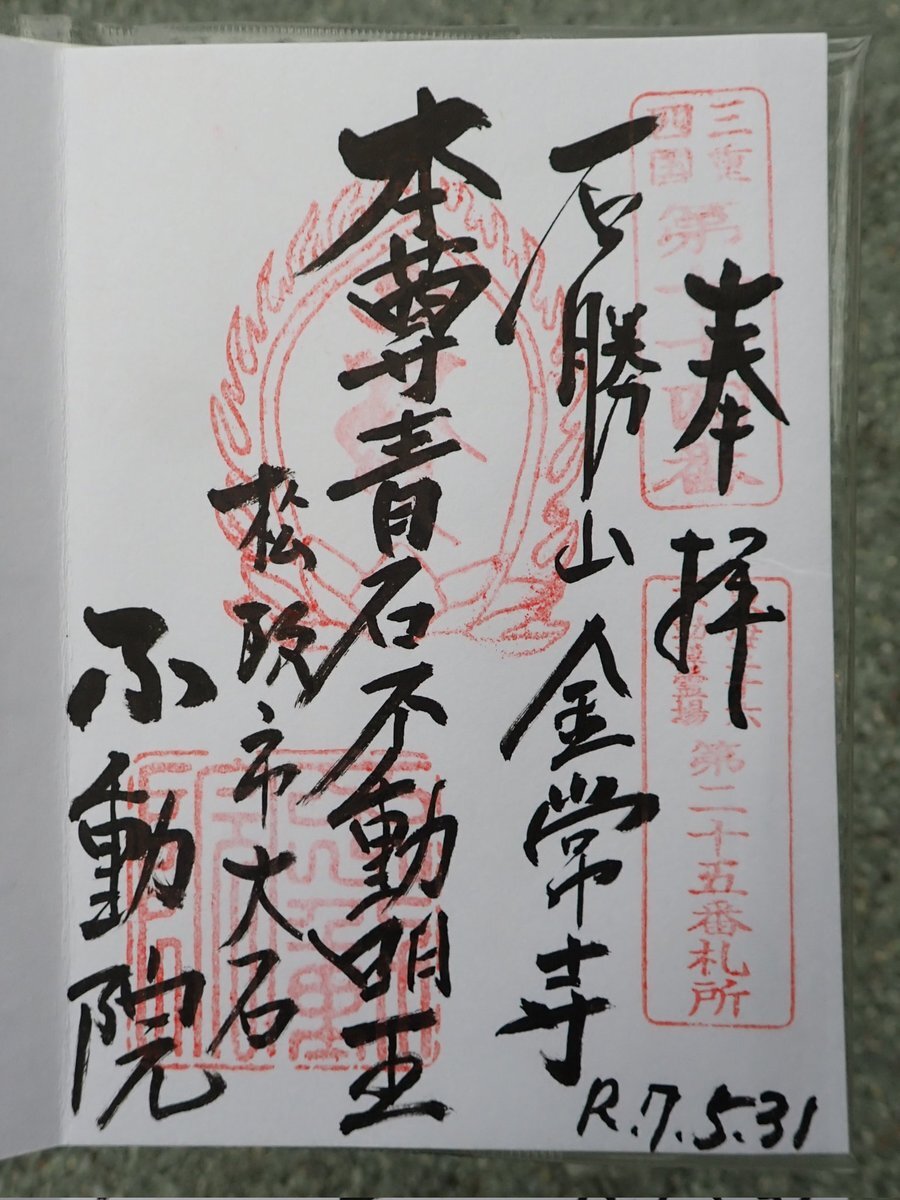 三重
四国
第二十四番
奉拝
第二十五番札所
石勝山金常寺
本尊青石不動明王
松阪市大石
不動院
R.7.5.31